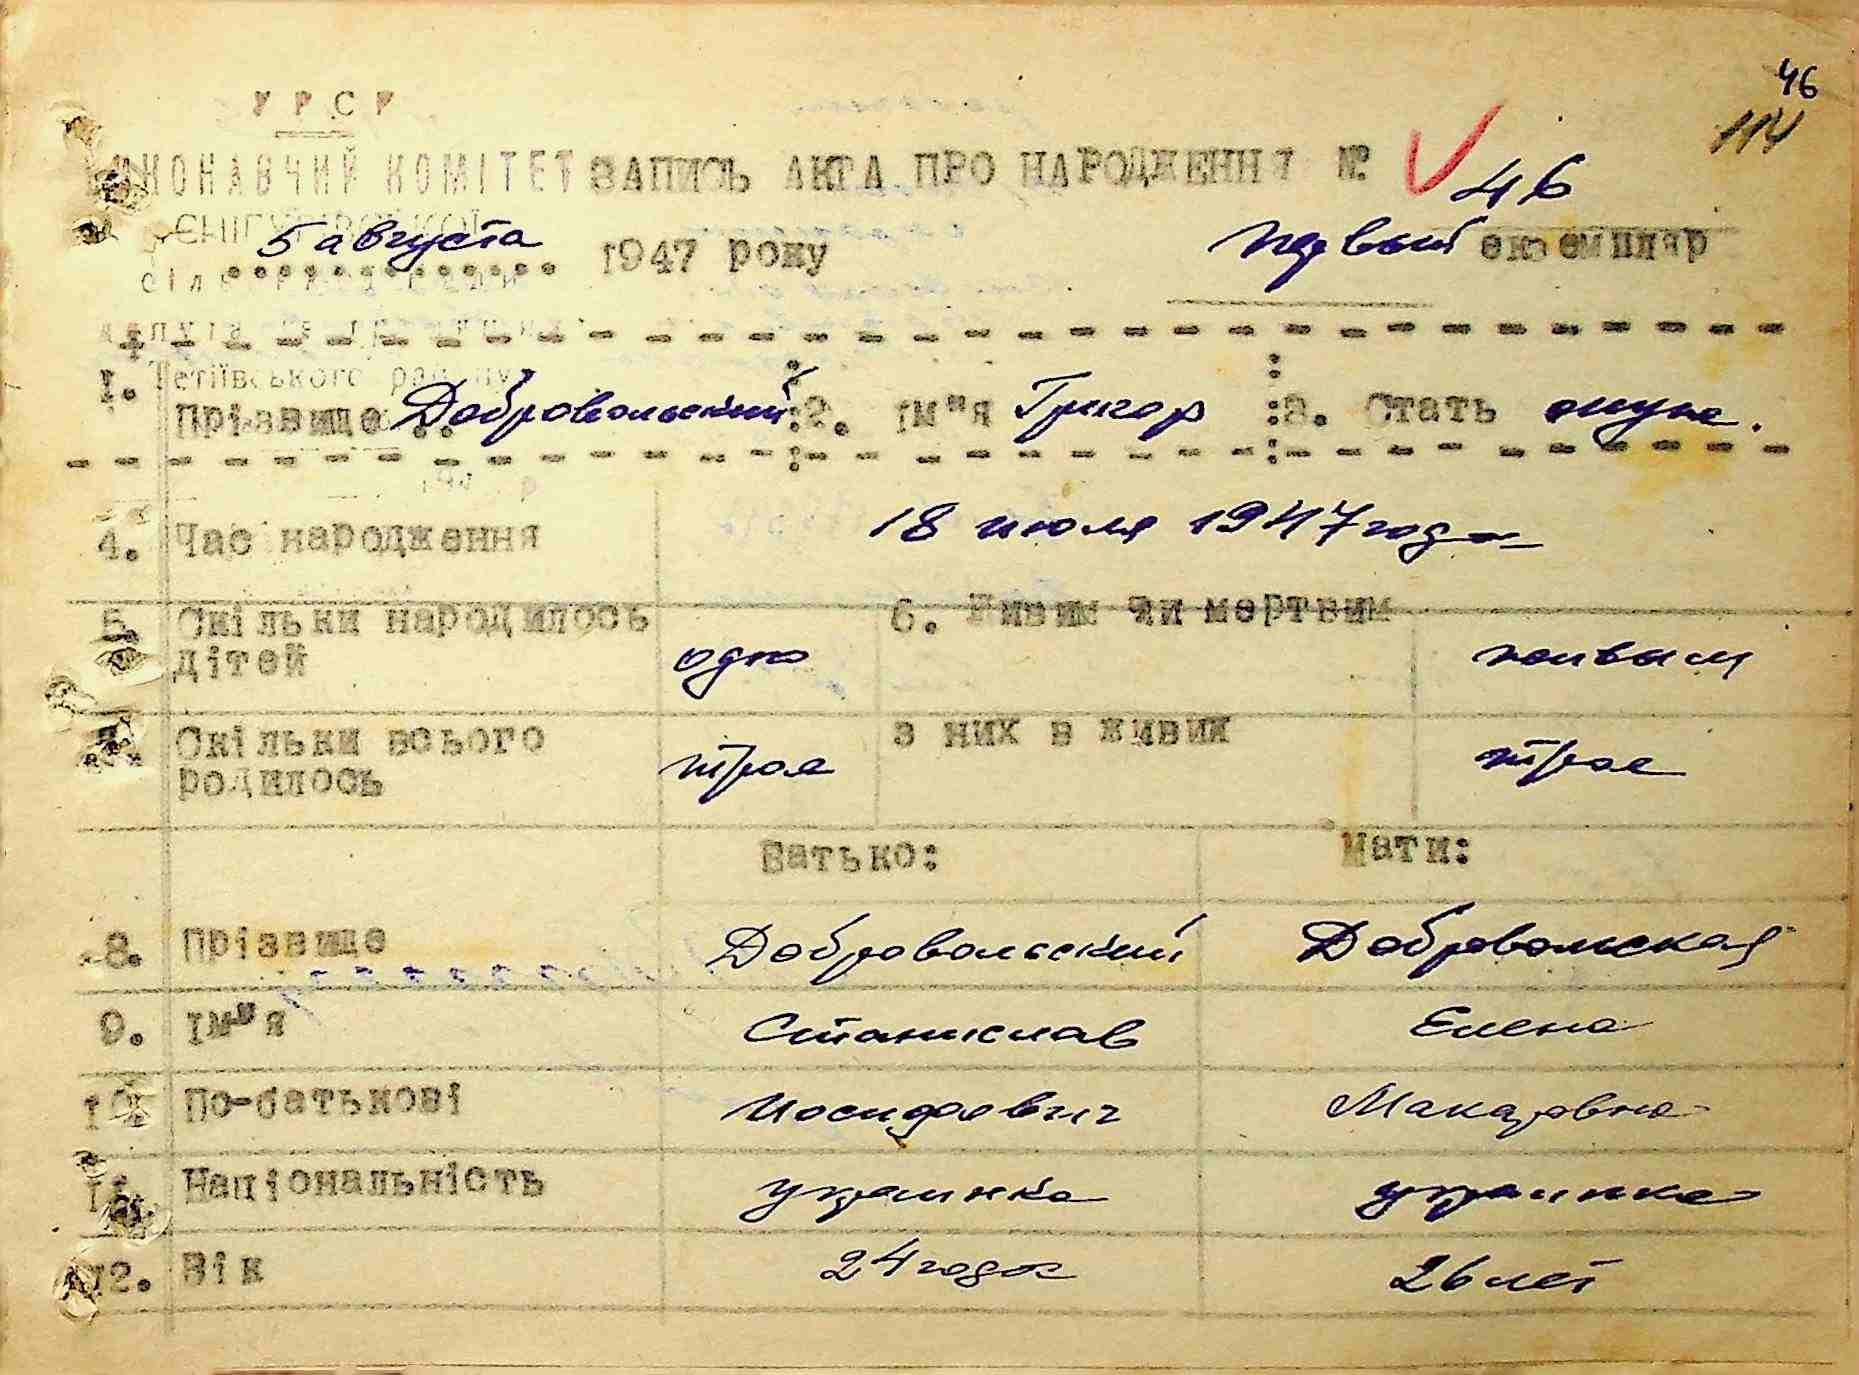 46
114
У Р С Р
ВИКОНАВЧИЙ КОМІТЕТ ЗАПИСЬ АКТА ПРО НАРОДЖЕННЯ №. 46
5 августа 1947 року первый екземпляр
Тетіївського району
1. Прізвище Добровольский 2. Ім"я Григор 3. Стать муж.
4. Час народження 18 июля 1947 года
5. Скільки народилось дітей одно 6. Живим чи мертвим живым
7. Скільки всього родилось трое з них в живих трое
Батько: Мати:
8. Прізвище Добровольский Добровольская
9. Ім"я Станислав Елена
10. По-батькові Иосифович Макаровна
11. Національність украинка украинка
12. Вік 24 года 26 лет